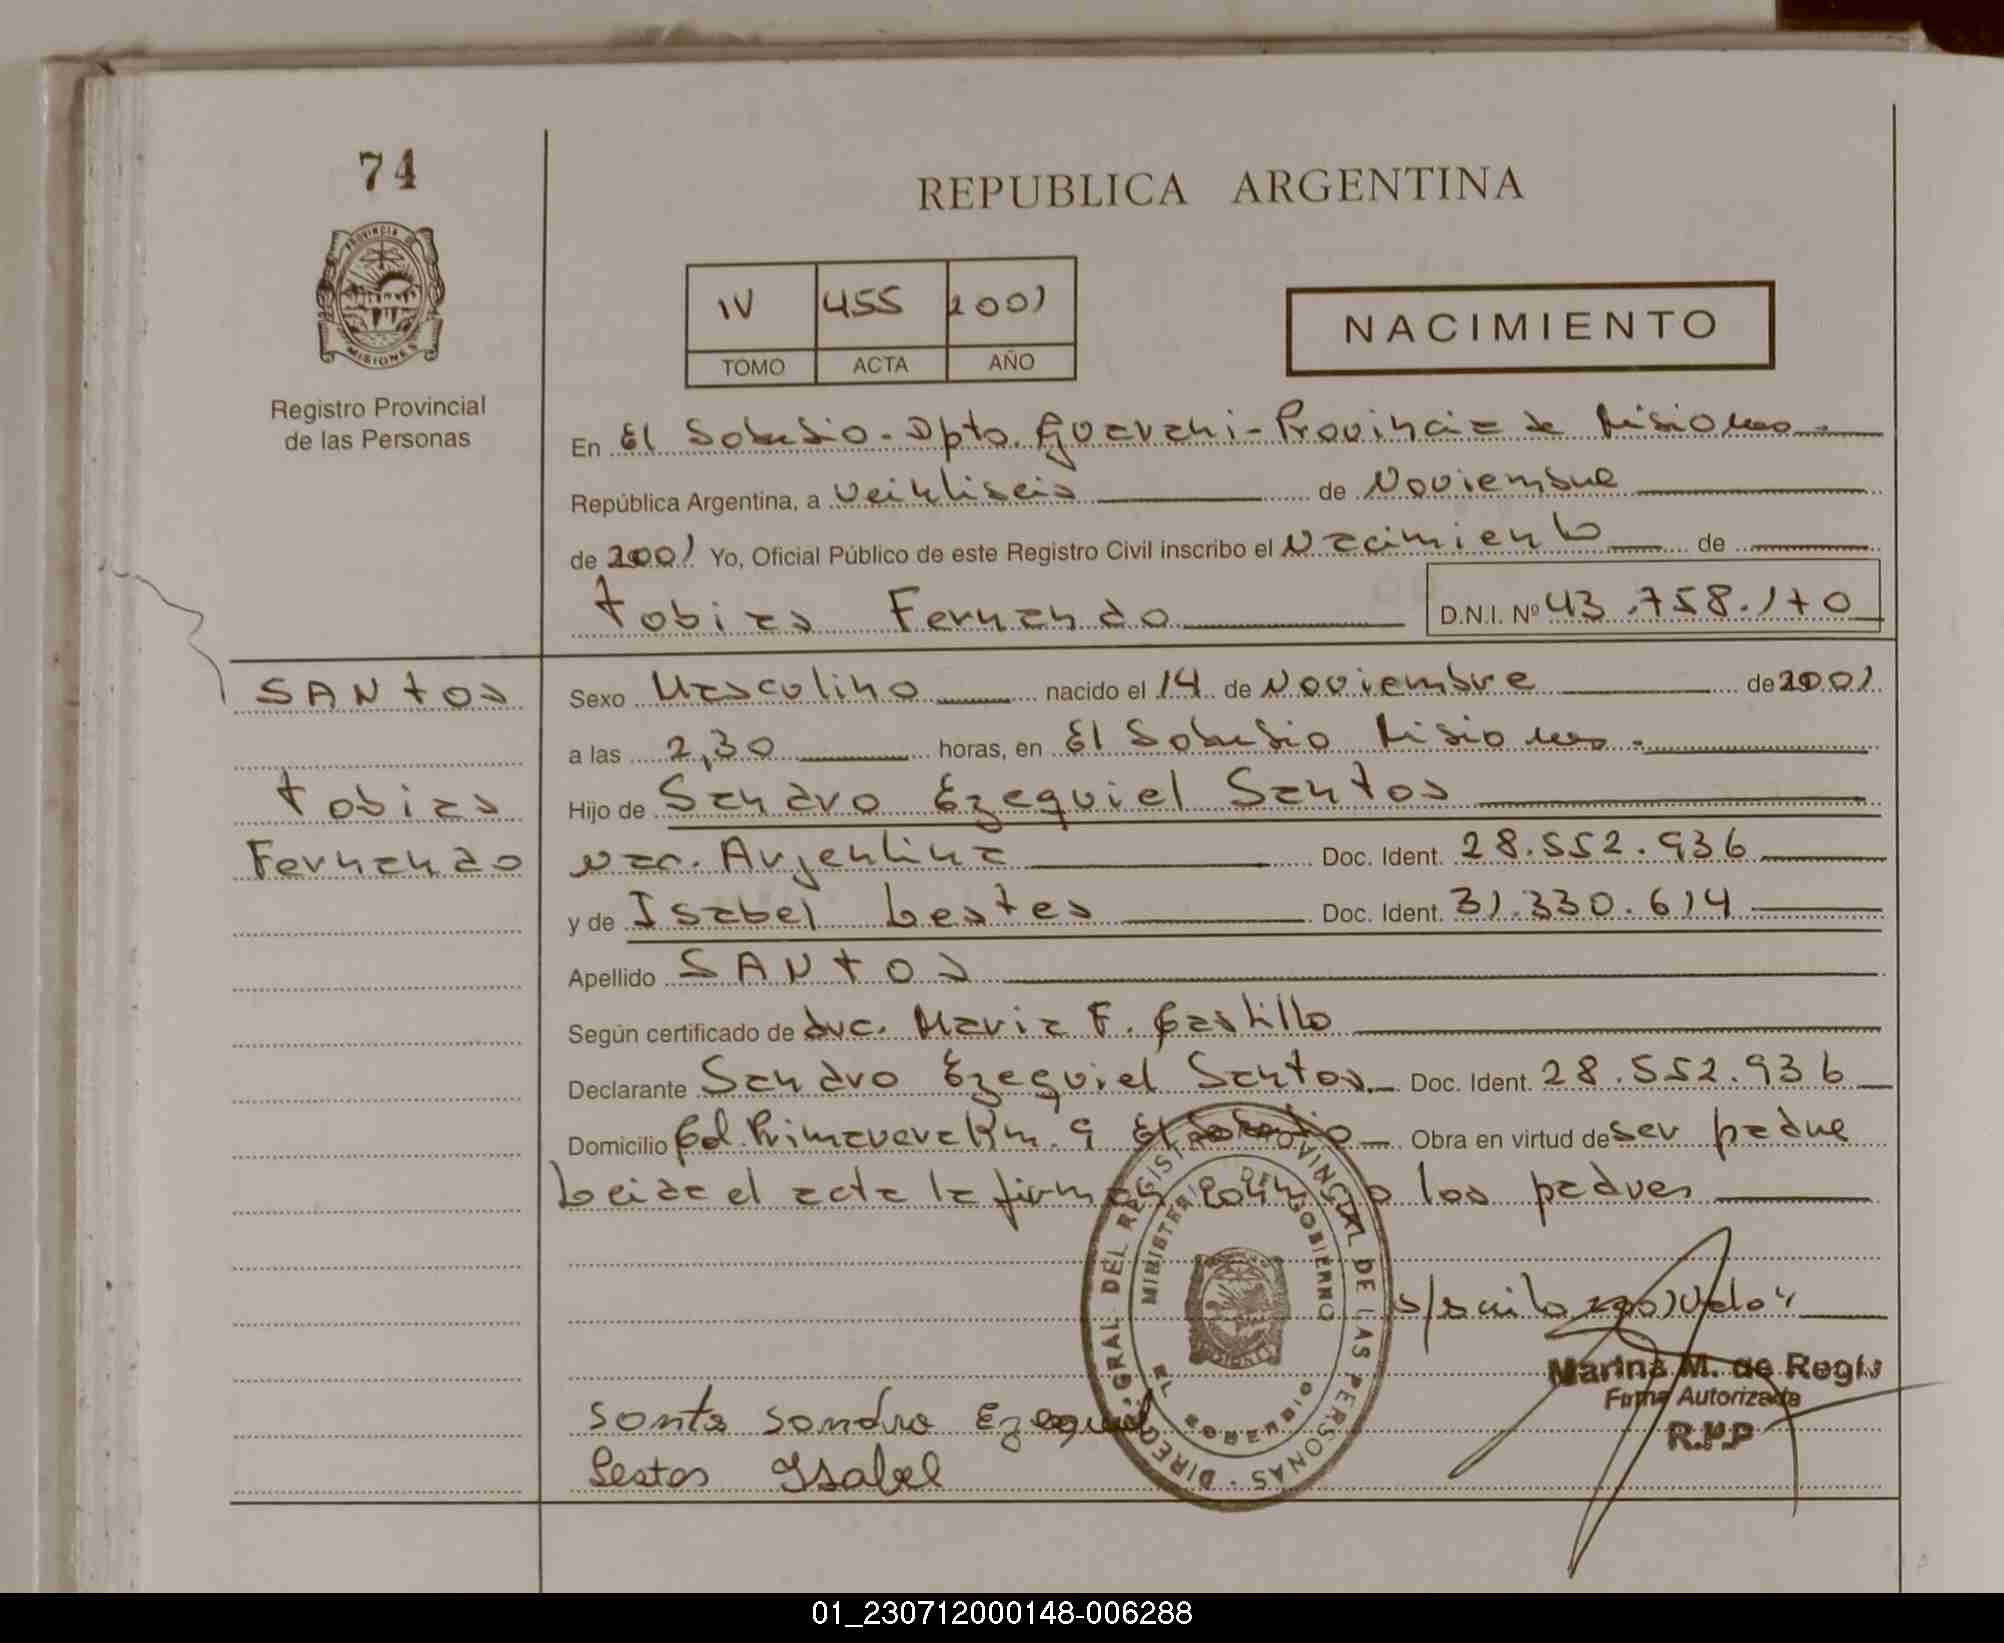 74
PROVINCIA DE
MISIONES
Registro Provincial
de las Personas
REPUBLICA ARGENTINA
IV 455 2001
TOMO ACTA AÑO
NACIMIENTO
En El Soberbio - Dpto. Guarani - Provincia de Misiones.
República Argentina, a veintiseis de Noviembre
de 2001 Yo, Oficial Público de este Registro Civil inscribo el Nacimiento de
Tobias Fernando D.N.I. Nº 43.758.170
SANTOS
Sexo Masculino nacido el 14 de Noviembre de 2001
a las 2,30 horas, en El Soberbio Misiones.
Tobias
Hijo de Sandro Ezequiel Santos
Fernando
Nac. Argentina Doc. Ident. 28.552.936
y de Isabel Lestes Doc. Ident. 31.330.614
Apellido SANTOS
Según certificado de Maria F. Castillo
Declarante Sandro Ezequiel Santos. Doc. Ident. 28.552.936
Domicilio Col. Primavera Km. 9 El Soberbio Obra en virtud de ser padre
Leida el acta la firman los padres
Marina M. de Regis
Firma Autorizada
R.P.P
Isabel
DIREC. GRAL. DEL REGISTRO PROVINCIAL DE LAS PERSONAS
MINISTERIO DE GOBIERNO
01_230712000148-006288